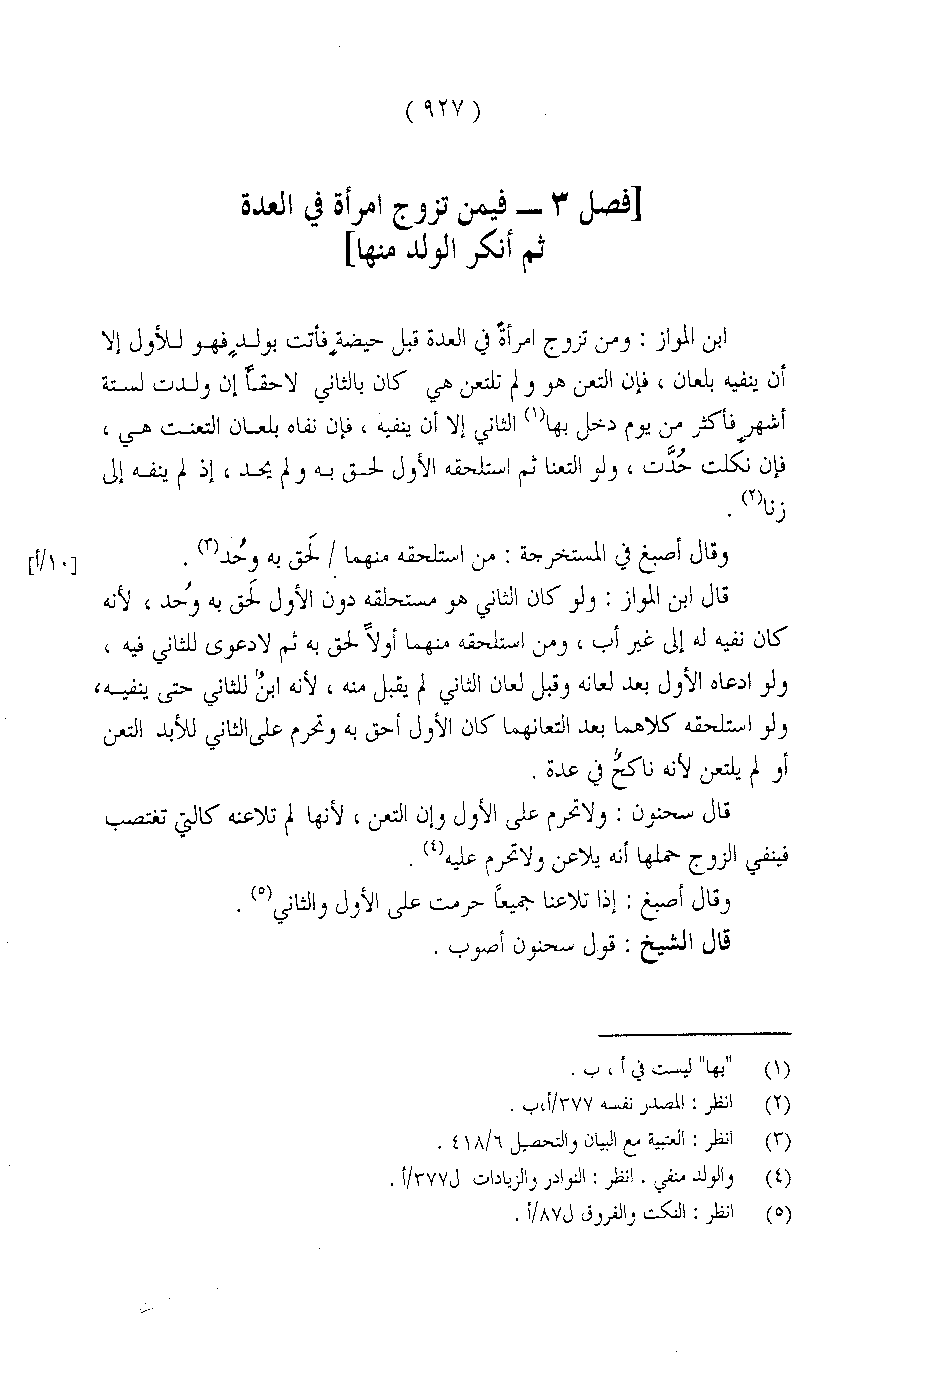 ( ٩٢٧ )
[فصل ٣ ــ فيمن تزوج امرأة في العدة
ثم أنكر الولد منها]
ابن المواز : ومن تزوج امرأةً في العدة قبل حيضةٍ فأتت بولدٍ فهو للأول إلا
أن ينفيه بلعان ، فإن التعن هو ولم تلتعن هي كان بالثاني لاحقاً إن ولدت لستة
أشهرٍ فأكثر من يوم دخل بها(١) الثاني إلا أن ينفيه ، فإن نفاه بلعان التعنت هي ،
فإن نكلت حُدَّت ، ولو التعنا ثم استلحقه الأول لحق به ولم يحد ، إذ لم ينفه إلى
زنا(٢) .
وقال أصبغ في المستخرجة : من استلحقه منهما / لَحق به وحُد(٣) . [١٠/أ]
قال ابن المواز : ولو كان الثاني هو مستحلقه دون الأول لَحق به وحُد ، لأنه
كان نفيه له إلى غير أب ، ومن استلحقه منهما أولاً لحق به ثم لادعوى للثاني فيه ،
ولو ادعاه الأول بعد لعانه وقبل لعان الثاني لم يقبل منه ، لأنه ابنٌ للثاني حتى ينفيه،
ولو استلحقه كلاهما بعد التعانهما كان الأول أحق به وتحرم على الثاني للأبد التعن
أو لم يلتعن لأنه ناكحٌ في عدة .
قال سحنون : ولاتحرم على الأول وإن التعن ، لأنها لم تلاعنه كالتي تغتصب
فينفي الزوج حملها أنه يلاعن ولاتحرم عليه(٤) .
وقال أصبغ : إذا تلاعنا جميعاً حرمت على الأول والثاني(٥) .
قال الشيخ : قول سحنون أصوب .
(١) "بها" ليست في أ ، ب .
(٢) انظر : المصدر نفسه ٣٧٧/أ،ب .
(٣) انظر : العتبية مع البيان والتحصيل ٤١٨/٦ .
(٤) والولد منفي . انظر : النوادر والزيادات ل٣٧٧/أ .
(٥) انظر : النكت والفروق ل٨٧/أ .